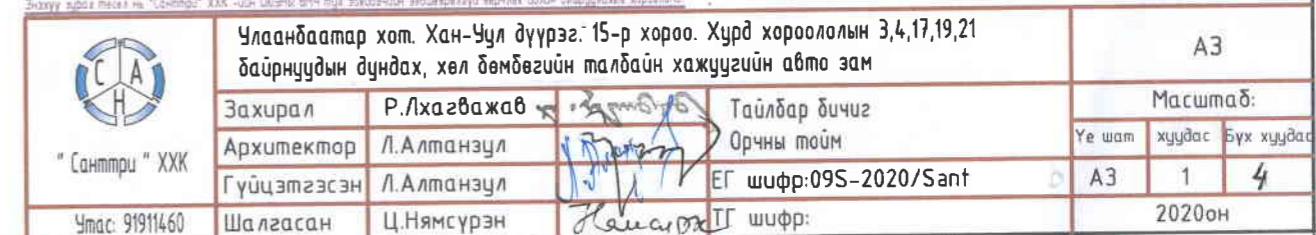 Энэхүү зураг төсөл нь "Санттри" ХХК -ийн
Улаанбаатар хот. Хан-Уул дүүрэг. 15-р хороо. Хурд хороололын 3,4,17,19,21
байрнуудын дундах, хөл бөмбөгийн талбайн хажуугийн авто зам
А3
С А Н
" Санттри " ХХК
Утас: 91911460
Захирал Р.Лхагважав
Архитектор Л.Алтанзул
Гүйцэтгэсэн Л.Алтанзул
Шалгасан Ц.Нямсүрэн
Тайлбар бичиг
Орчны тойм
ЕГ шифр:09S-2020/Sant
ТГ шифр:
Масштаб:
Үе шат хуудас Бүх хуудас
А3 1 4
2020он